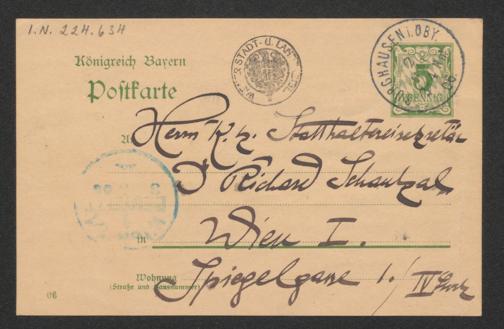 I.N. 224.634
Königreich Bayern
Postkarte
STADT- U.
BURGHAUSEN I. OBY.
5
PFENNIG
Herrn K. K. Statthaltereisekretär
Dr Richard Schaukal
in Wien I.
Wohnung
(Straße und Hausnummer)
Spiegelgasse 1./IV Stock
06